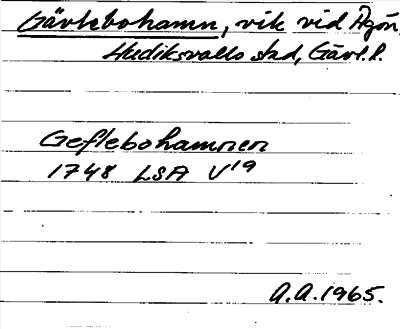 Gävlebohamn, vik vid Agön,
Hudiksvalls stad, Gävl.l.
Geflebohamnen
1748 LSA V19
A.A. 1965.